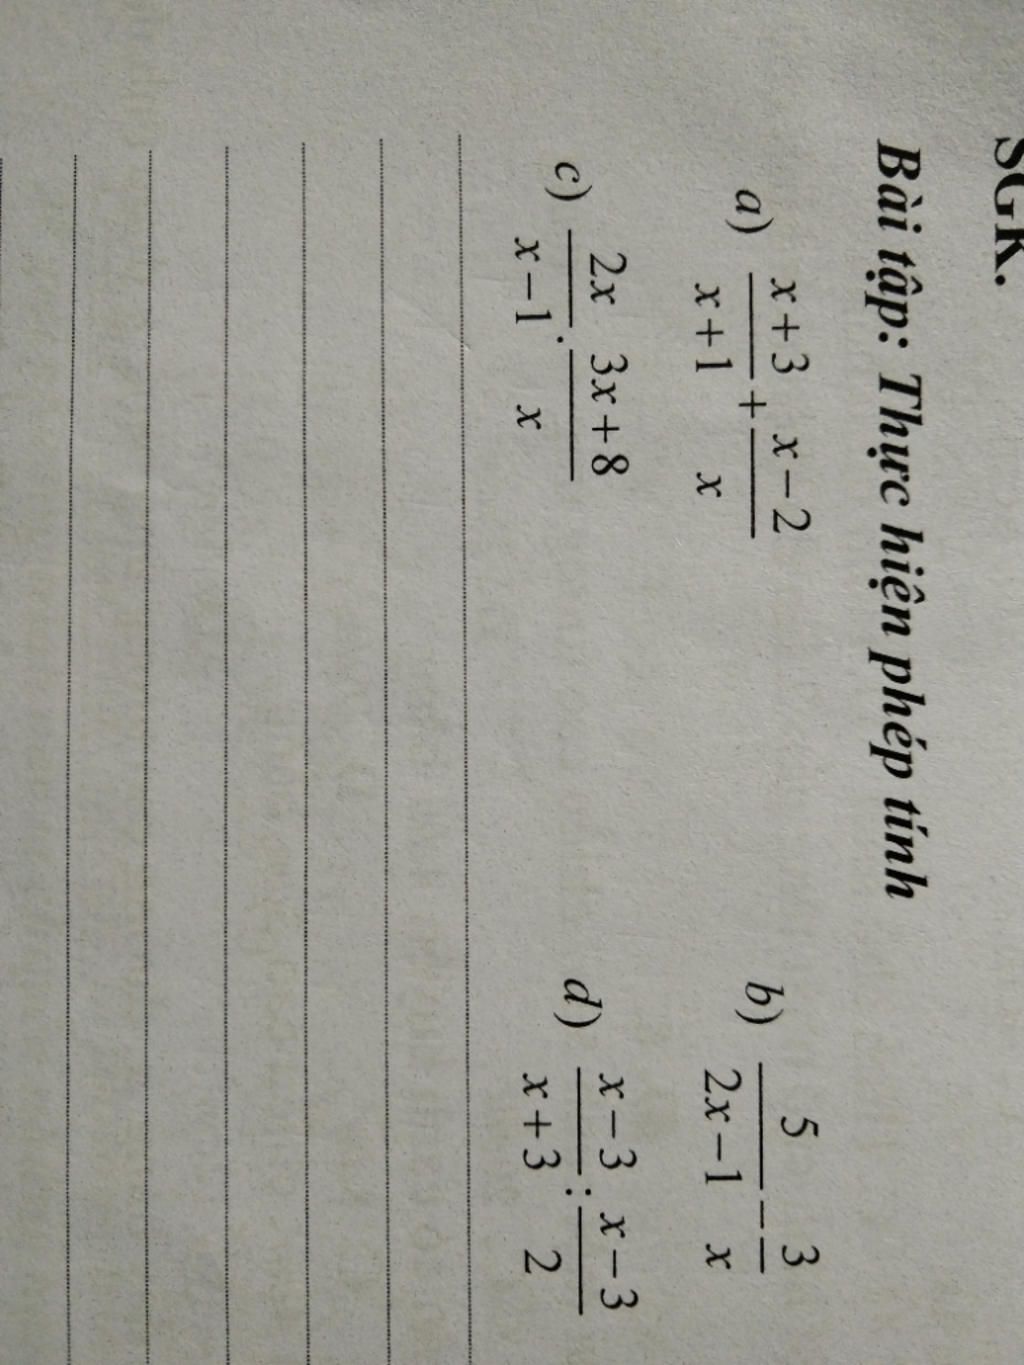 SGK.
Bài tập: Thực hiện phép tính
a) \frac{x+3}{x+1} + \frac{x-2}{x}
b) \frac{5}{2x-1} - \frac{3}{x}
c) \frac{2x}{x-1} . \frac{3x+8}{x}
d) \frac{x-3}{x+3} : \frac{x-3}{2}